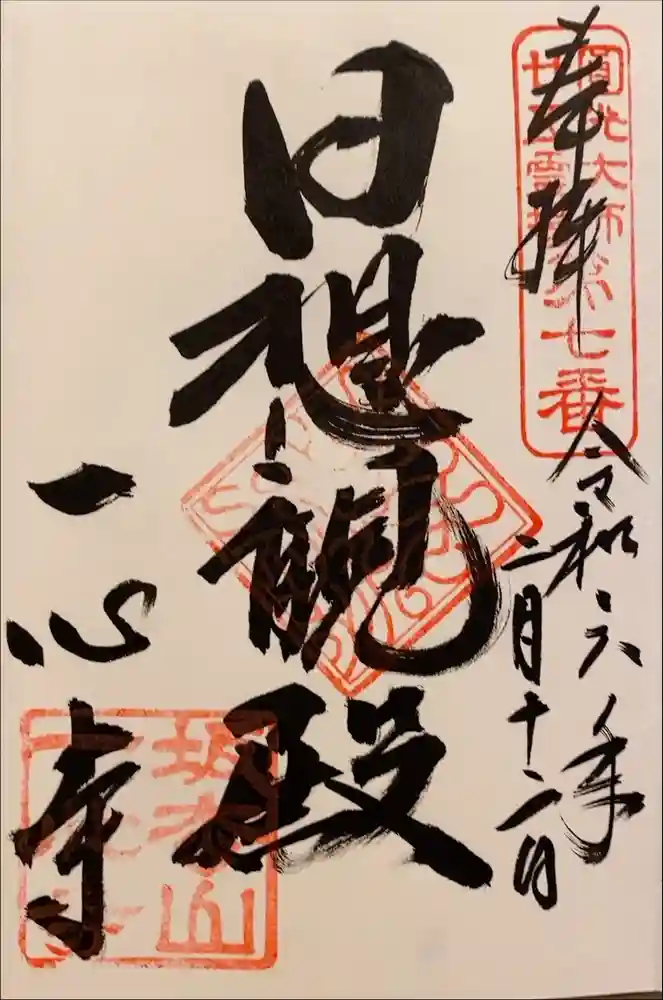 奉拝
圓光大師
廿五霊場
第七番
令和六年
二月十二日
日想観殿
一心寺
坂松山
一心寺